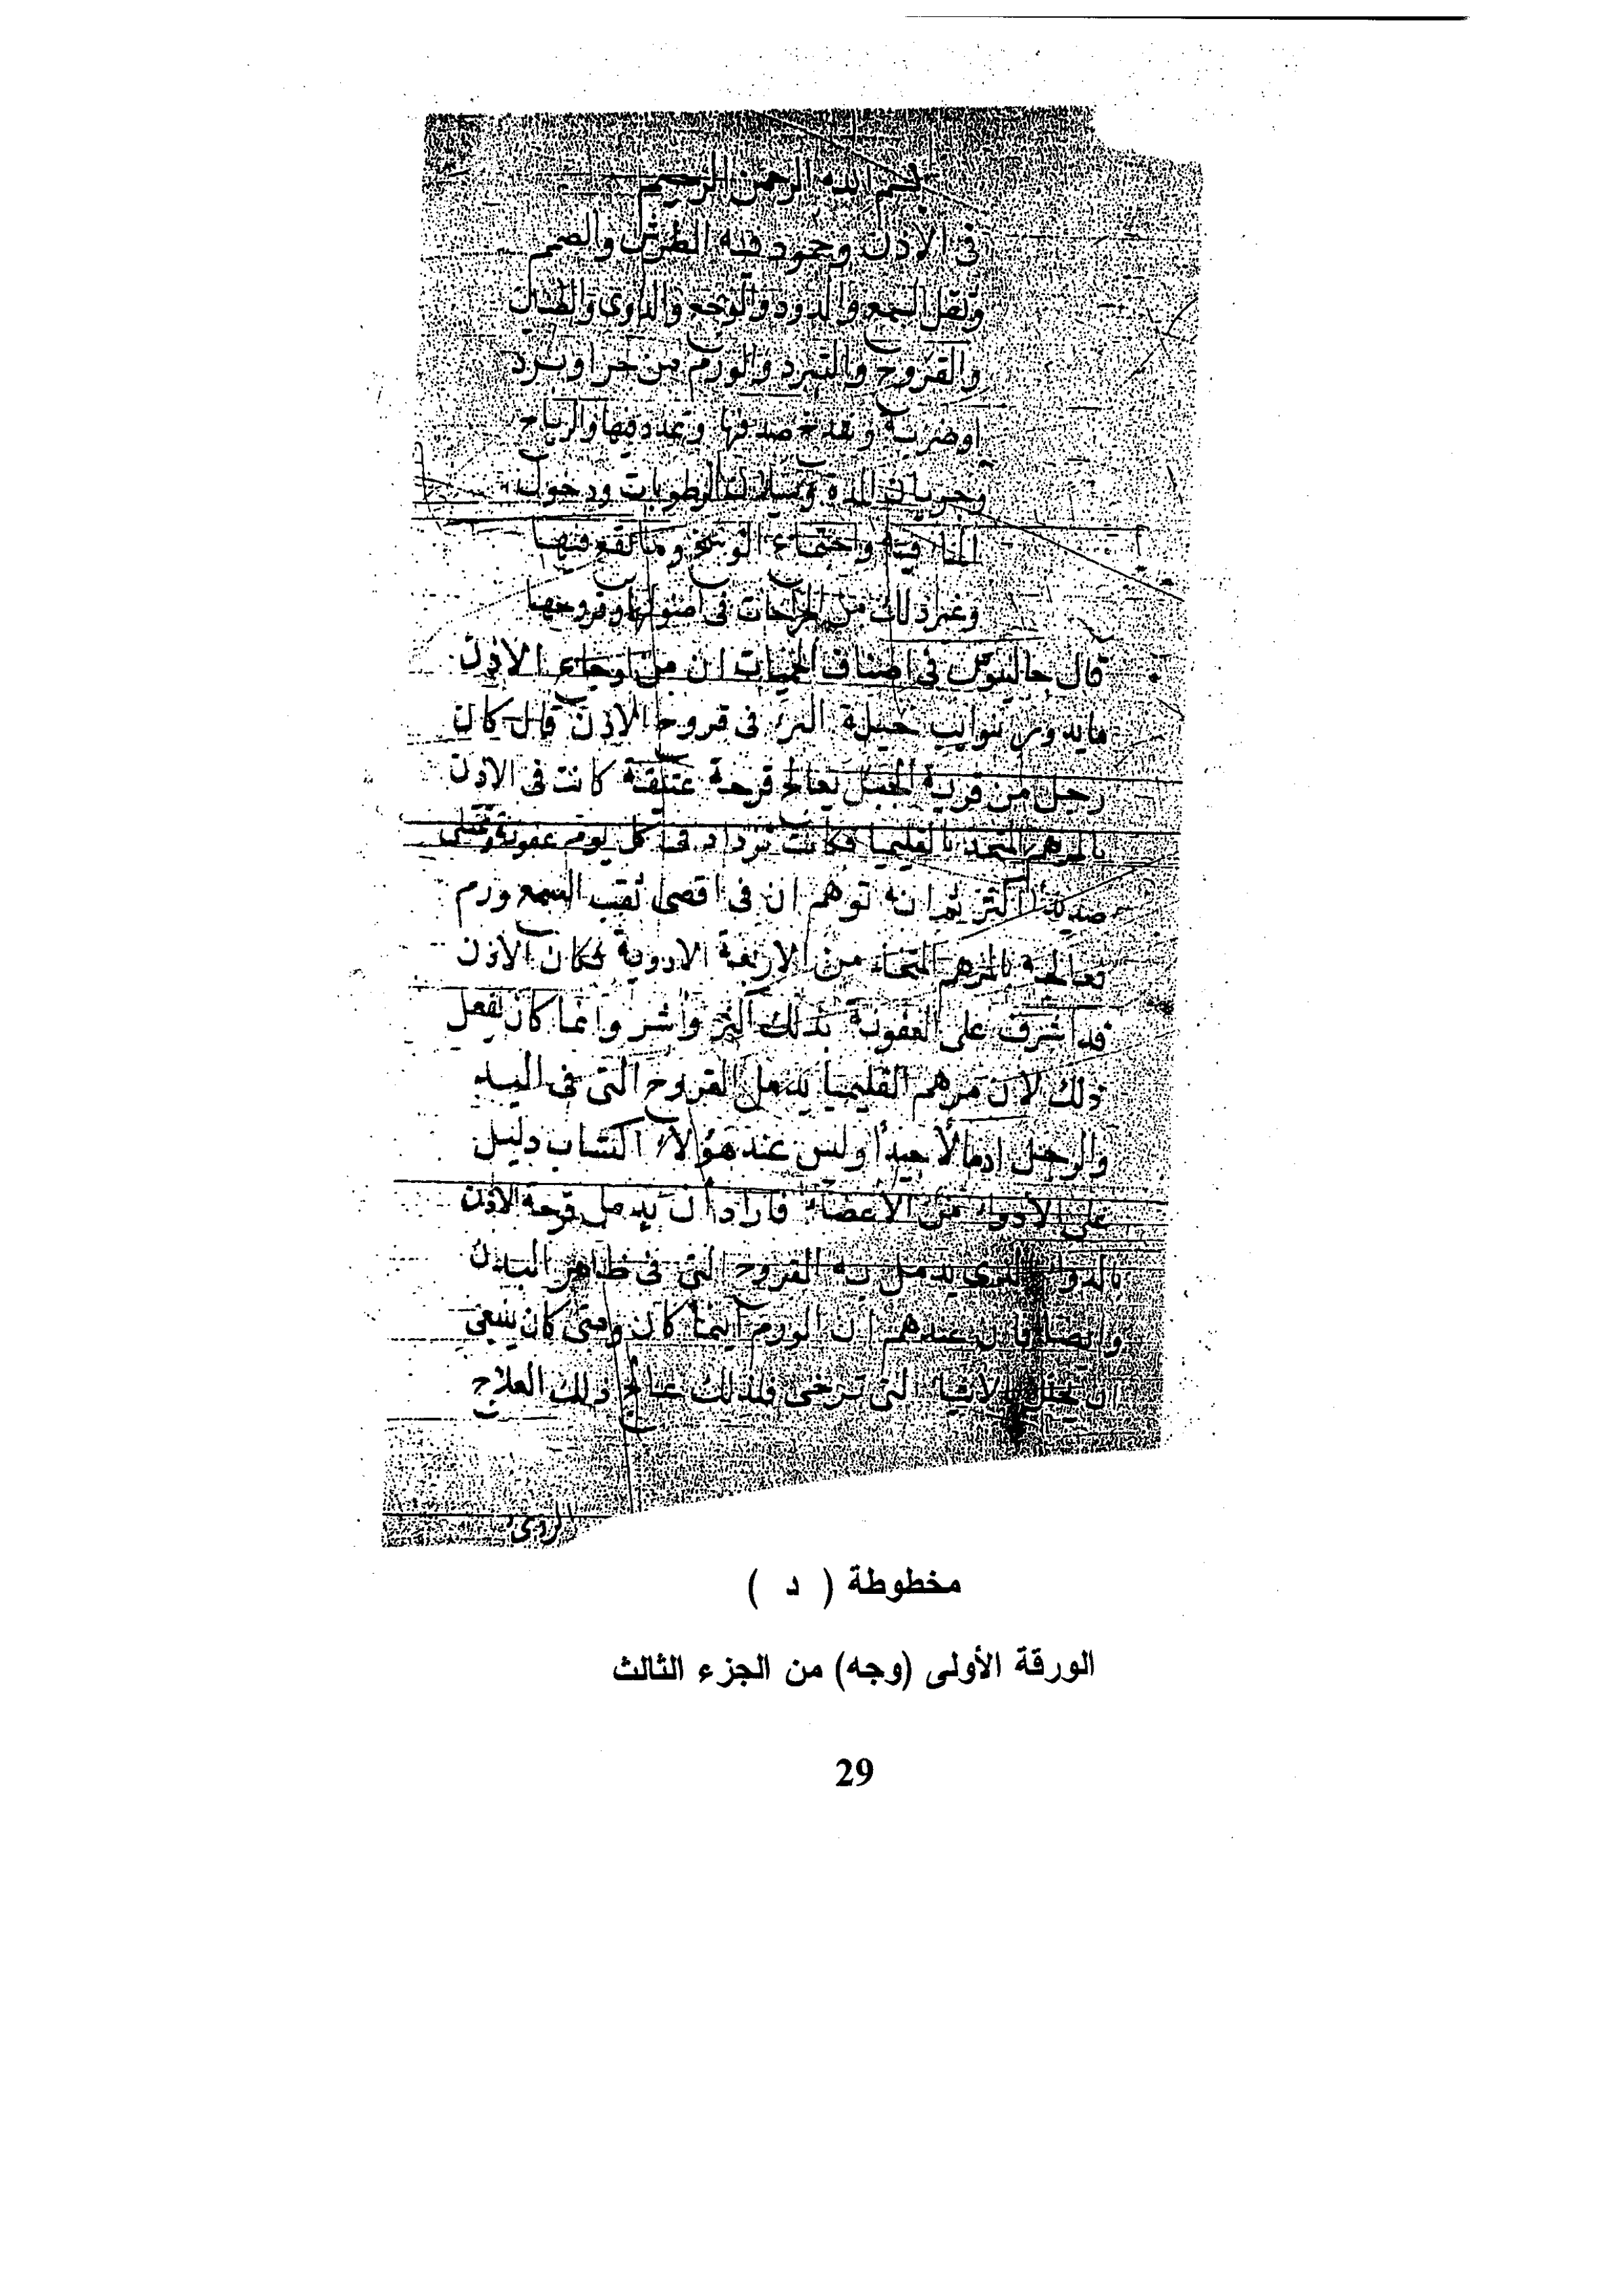 بسم الله الرحمن الرحيم
فى الاذن وجمود فيه الطرش والصمم
وثقل السمع والدود والوجع والدوى والطنين
والقروح والتبرد والورم من حر او برد
او ضربة صدفها وتمدد فيها والرياح
وجريان المدة وسيلان الرطوبات ودخول
الما فيها واجتماع الوسخ وما يقع فيها
وغير ذلك من الجراحات فى اصولها وقروحها
قال جالينوس فى اصناف الحميات ان من اوجاع الاذن
ما يدور بنوايب حيلة البرء فى قروح الاذن قال كان
رجل من قرية يعالج قرحة عتيقة كانت فى الاذن
بالمرهم المتخذ بالقليميا فكانت تزداد فى كل يوم عفونة وتمتلى
صديدا اكثر ثم انه توهم ان فى اقصى ثقب السمع ورم
فعالجه بالمرهم المتخذ من الاربعة الادوية فكان الاذن
قد اشرف على العفونة بذلك اكثر واشر وانما كان يفعل
ذلك لان مرهم القليميا يدمل القروح التى فى اليد
والرجل ادمالا جيدا وليس عند هؤلاء اكتساب دليل
على الادواء من الاعضاء فاراد ان يدمل قرحة الاذن
بالدواء الذى يدمل به القروح التى فى ظاهر البدن
وايضا فان عندهم ان الورم اينما كان ومتى كان ينبغى
ان يحلل بالاشيا التى ترخى ولذلك عالج ذلك العلاج
الردى
مخطوطة ( د )
الورقة الأولى (وجه) من الجزء الثالث
29